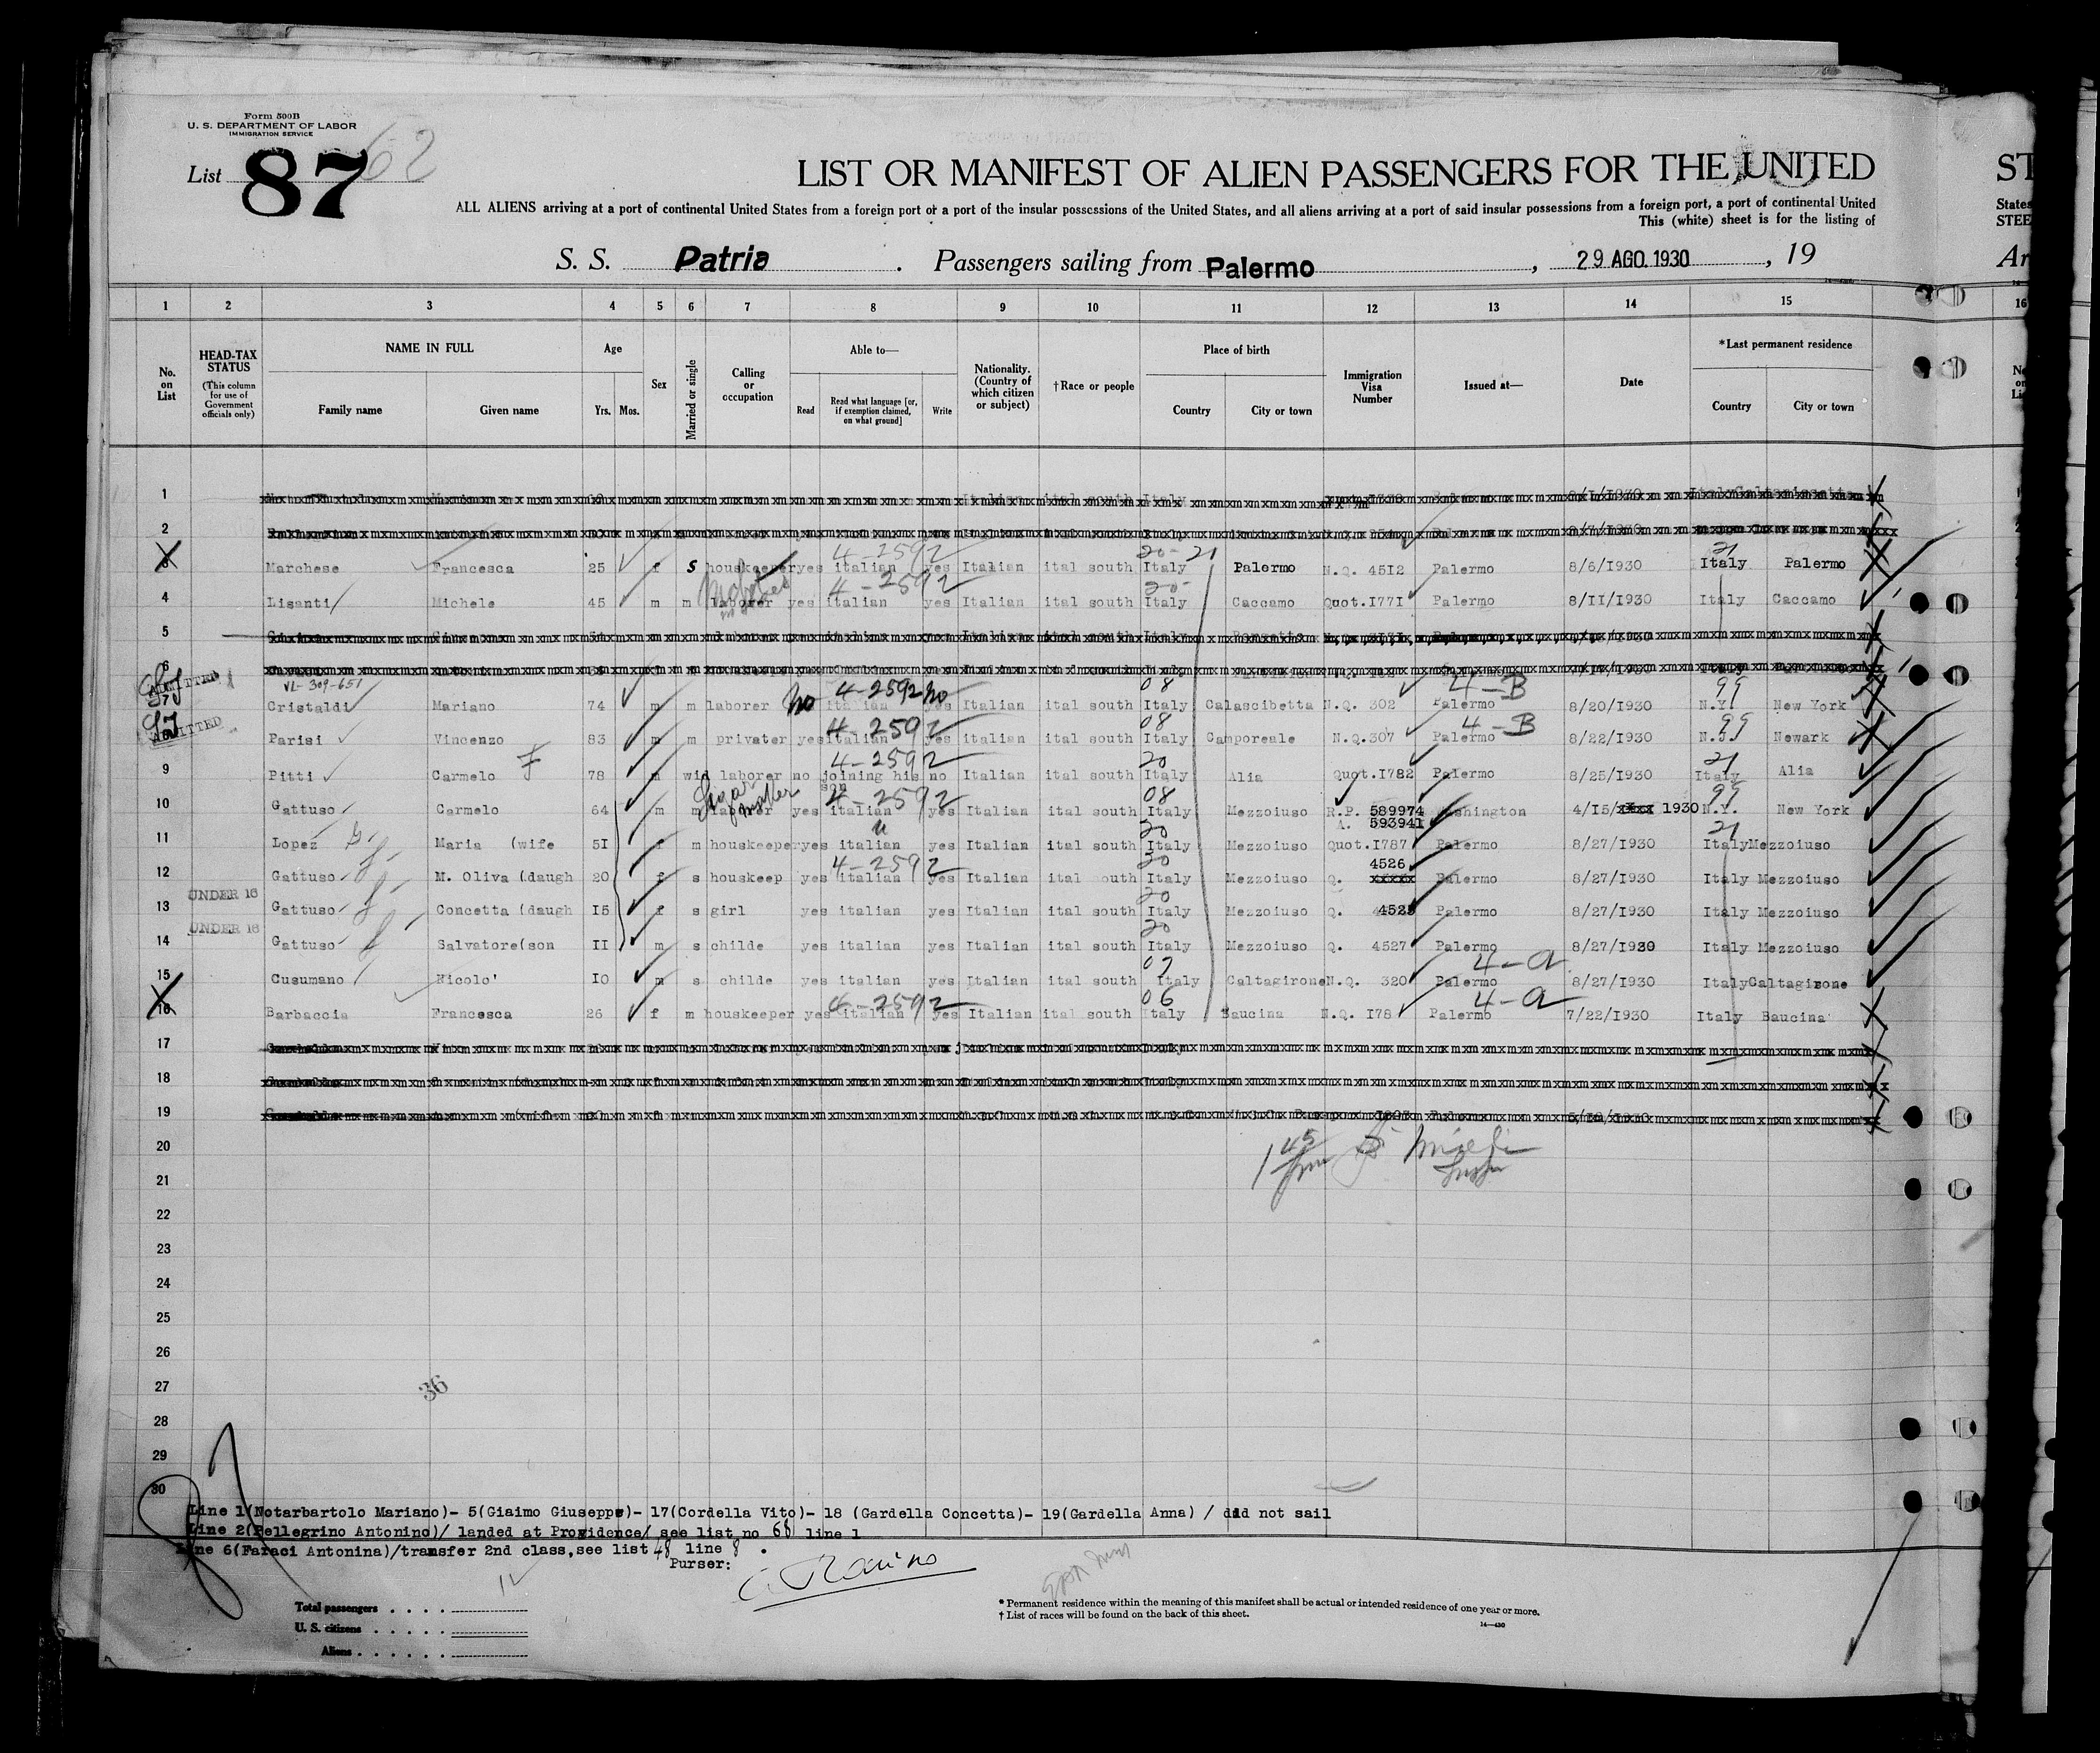 Form 500B
U. S. DEPARTMENT OF LABOR
IMMIGRATION SERVICE
62
List 87
LIST OR MANIFEST OF ALIEN PASSENGERS FOR THE UNITED
ST
ALL ALIENS arriving at a port of continental United States from a foreign port or a port of the insular possessions of the United States, and all aliens arriving at a port of said insular possessions from a foreign port, a port of continental United
States
This (white) sheet is for the listing of
STEE
S. S. Patria . Passengers sailing from Palermo , 29 AGO. 1930 , 19
Ar
1 2 3 4 5 6 7 8 9 10 11 12 13 14 15 16
No. on List
HEAD-TAX STATUS (This column for use of Government officials only)
NAME IN FULL
Family name Given name
Age
Yrs. Mos.
Sex
Married or single
Calling or occupation
Able to—
Read Read what language [or, if exemption claimed, on what ground] Write
Nationality. (Country of which citizen or subject)
†Race or people
Place of birth
Country City or town
Immigration Visa Number
Issued at—
Date
*Last permanent residence
Country City or town
1
2
4-2592 20-21 21
3 Marchese Francesca 25 f S houskeeper yes italian yes Italian ital south Italy Palermo N.Q. 45I2 Palermo 8/6/I930 Italy Palermo
4-2592 20
4 Lisanti Michele 45 m m laborer yes italian yes Italian ital south Italy Caccamo Quot.I77I Palermo 8/II/I930 Italy Caccamo
5
6
ADMITTED
VL-309-651 4-2592 08 4-B 99
Cristaldi Mariano 74 m m laborer No italian yes No Italian ital south Italy Calascibetta N.Q. 302 Palermo 8/20/I930 N.Y. New York
ADMITTED
4-2592 08 4-B 99
Parisi Vincenzo 83 m m privater yes italian yes italian ital south Italy Camporeale N.Q.307 Palermo 8/22/I930 N.J. Newark
4-2592 20 21
9 Pitti Carmelo 78 m wid laborer no joining his son no Italian ital south Italy Alia Quot.I782 Palermo 8/25/I930 Italy Alia
4-2592 08 99
10 Gattuso Carmelo 64 m m laborer yes italian yes Italian ital south Italy Mezzoiuso R.P. 589974 Washington 4/I5/xxxx 1930 N.Y. New York
A. 593941
20 21
11 Lopez Maria (wife 5I f m houskeeper yes italian yes Italian ital south Italy Mezzoiuso Quot.I787 Palermo 8/27/I930 Italy Mezzoiuso
4-2592 20 4526
12 Gattuso M. Oliva (daugh 20 f s houskeep yes italian yes Italian ital south Italy Mezzoiuso Q. xxxxx Palermo 8/27/I930 Italy Mezzoiuso
UNDER 16
20
13 Gattuso Concetta (daugh I5 f s girl yes italian yes Italian ital south Italy Mezzoiuso Q. 4525 Palermo 8/27/I930 Italy Mezzoiuso
UNDER 16
20
14 Gattuso Salvatore(son II m s childe yes italian yes Italian ital south Italy Mezzoiuso Q. 4527 Palermo 8/27/I930 Italy Mezzoiuso
07 4-a
15 Cusumano Nicolo' I0 m s childe yes italian yes Italian ital south Italy Caltagirone N.Q. 320 Palermo 8/27/I930 Italy Caltagirone
4-2592 06 4-a
16 Barbaccia Francesca 26 f m houskeeper yes italian yes Italian ital south Italy Baucina N.Q. I78 Palermo 7/22/I930 Italy Baucina
17
18
19
20
21
22
23
24
25
26
27
36
28
29
30
Line 1(Notarbartolo Mariano)- 5(Giaimo Giuseppe)- 17(Cordella Vito)- 18 (Gardella Concetta)- 19(Gardella Anna) / did not sail
Line 2(Pellegrino Antonino)/ landed at Providence/ see list no 68 line 1
Line 6(Faraci Antonina)/transfer 2nd class,see list 48 line 8 .
Purser:
Total passengers
U. S. citizens
Aliens
* Permanent residence within the meaning of this manifest shall be actual or intended residence of one year or more.
† List of races will be found on the back of this sheet.
14—430